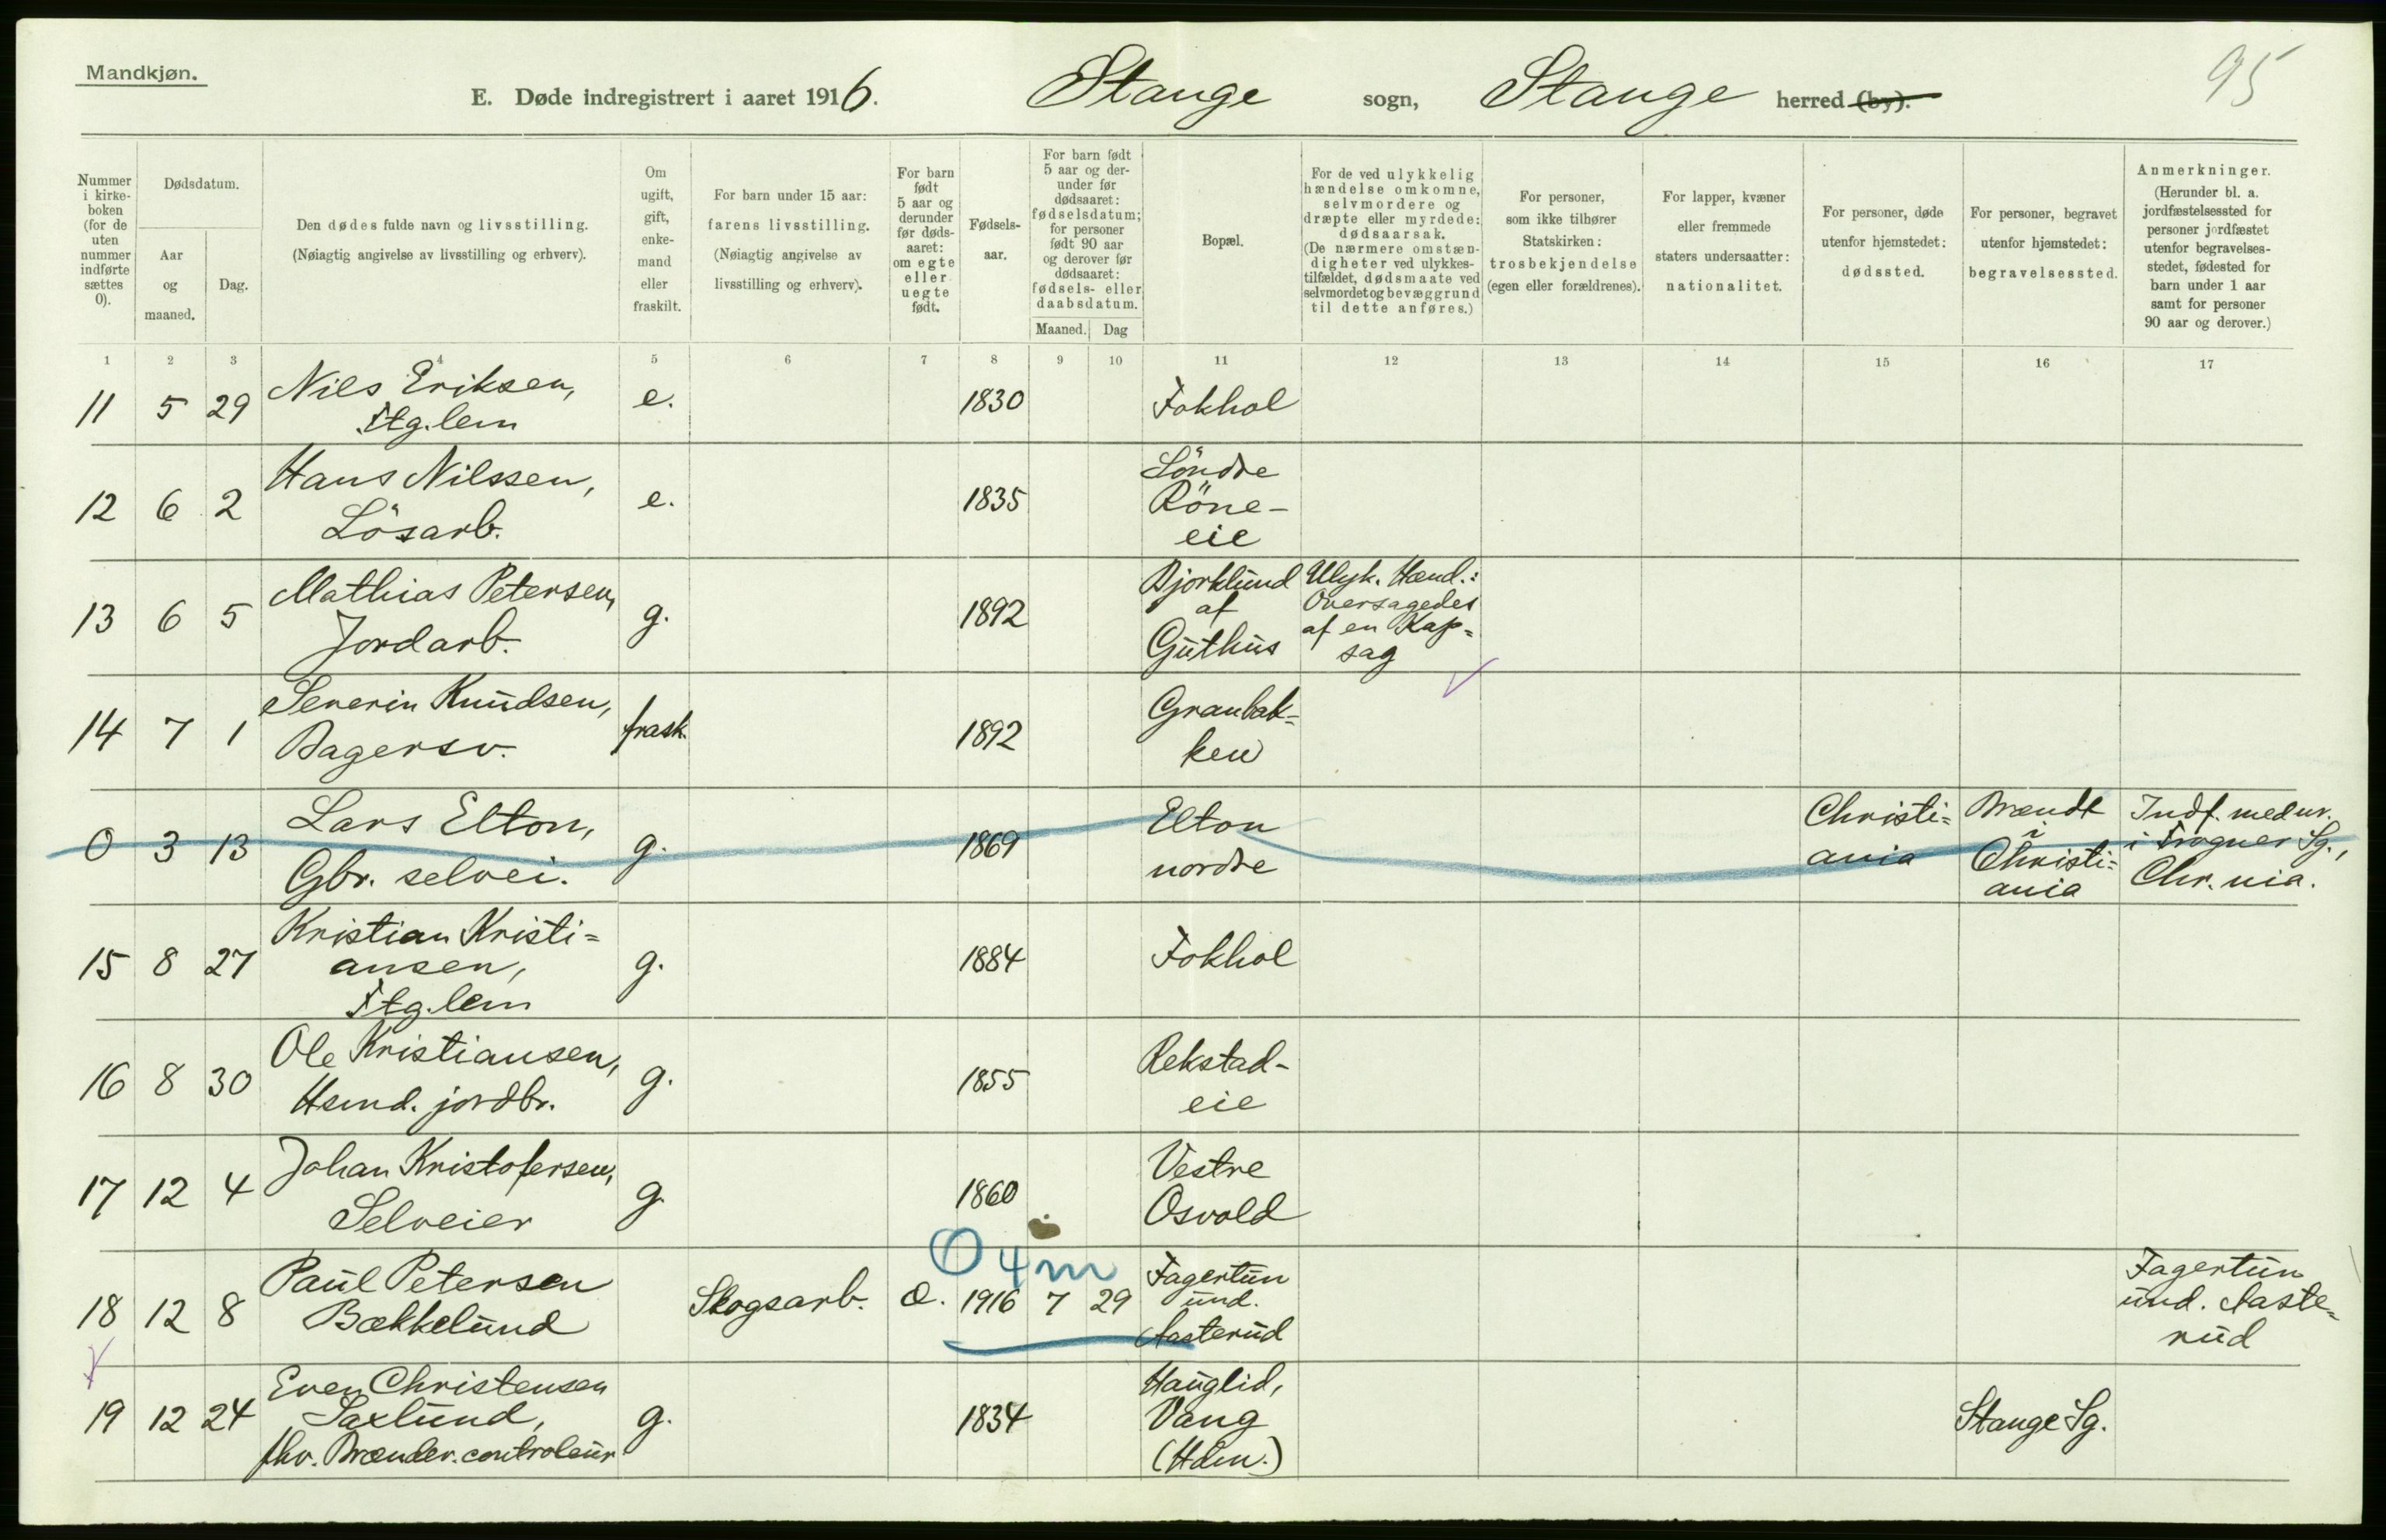 Mandkjøn.
95
E. Døde indregistrert i aaret 1916. Stange sogn, Stange herred (by).
Nummer i kirke-boken (for de uten nummer indførte sættes 0).
Dødsdatum.
Aar og maaned.
Dag.
Den dødes fulde navn og livsstilling.
(Nøiagtig angivelse av livsstilling og erhverv).
Om ugift, gift, enke-mand eller fraskilt.
For barn under 15 aar:
farens livsstilling.
(Nøiagtig angivelse av livsstilling og erhverv).
For barn født 5 aar og derunder før døds-aaret: om egte eller uegte født.
Fødsels-aar.
For barn født 5 aar og der-under før dødsaaret: fødselsdatum; for personer født 90 aar og derover før dødsaaret: fødsels- eller daabsdatum.
Maaned. Dag
Bopæl.
For de ved ulykkelig hændelse omkomne, selvmordere og dræpte eller myrdede: dødsaarsak. (De nærmere omstæn-digheter ved ulykkes-tilfældet, dødsmaate ved selvmordet og bevæggrund til dette anføres.)
For personer, som ikke tilhører Statskirken: trosbekjendelse (egen eller forældrenes).
For lapper, kvæner eller fremmede staters undersaatter: nationalitet.
For personer, døde utenfor hjemstedet: dødssted.
For personer, begravet utenfor hjemstedet: begravelsessted.
Anmerkninger.
(Herunder bl. a. jordfæstelsessted for personer jordfæstet utenfor begravelses-stedet, fødested for barn under 1 aar samt for personer 90 aar og derover.)
1 2 3 4 5 6 7 8 9 10 11 12 13 14 15 16 17
11 5 29 Nils Eriksen, e. 1830 Fokhol
Ftg.lem
12 6 2 Hans Nilssen, e. 1835 Söndre
Lösarb. Röne-
eie
13 6 5 Mathias Petersen, g. 1892 Bjorklund Ulyk. Hænd.:
Jordarb. af Oversagedes
Guthus af en Kap-
sag
14 7 1 Severin Knudsen, frask. 1892 Granbak-
Bagersv. ken
0 3 13 Lars Elton, g. 1869 Elton Christi- Brændt Indf. med nr.
Gbr. selvei. nordre ania i i Frogner Sg.,
Christi- Chr.nia.
ania
15 8 27 Kristian Kristi- g. 1884 Fokhol
ansen,
Ftg.lem
16 8 30 Ole Kristiansen, g. 1855 Rekstad-
Hsmd. jordbr. eie
17 12 4 Johan Kristofersen, g. 1860 Vestre
Selveier Osvold
0 4 m
18 12 8 Paul Petersen Skogsarb. e. 1916 7 29 Fagertun Fagertun
Bækkelund und. und. Aaste-
Aasterud rud
19 12 24 Even Christensen g. 1834 Hauglid, Stange Sg.
Saxlund, Vang
fhv. Brændericontroleur (Hdm.)